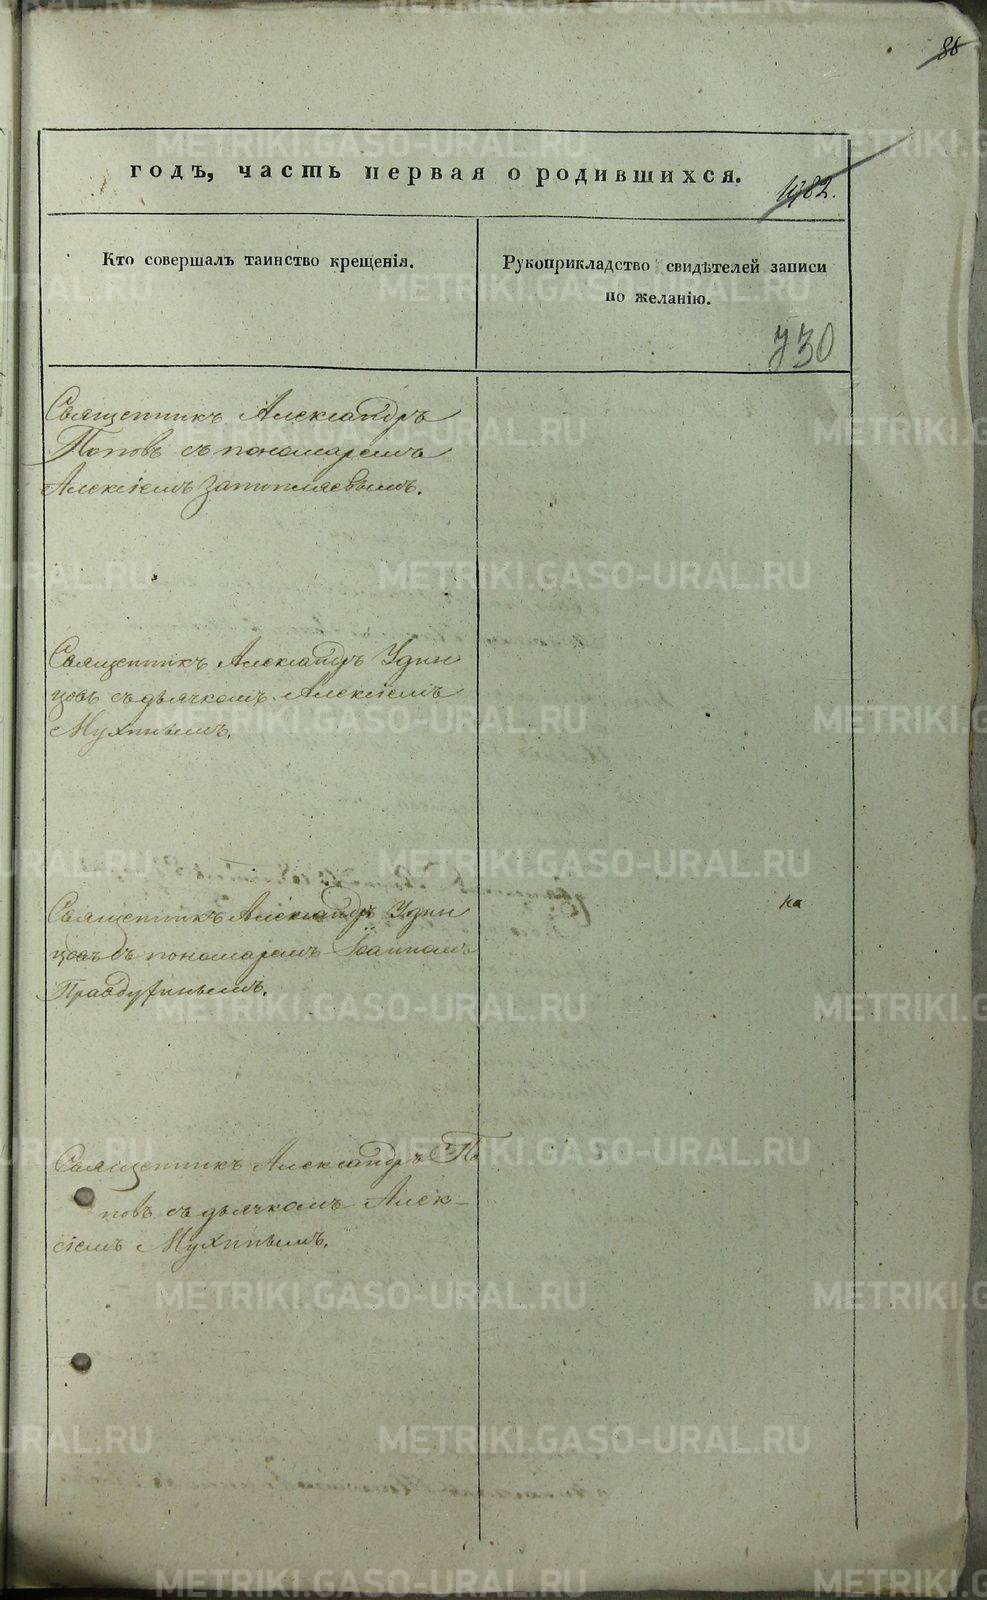 86
годъ, часть первая о родившихся.
1082.
Кто совершалъ таинство крещенія.
Рукоприкладство свидѣтелей записи
по желанію.
730
Священникъ Александръ
Поповъ съ пономаремъ
Алексіемъ Затопляевымъ.
Священникъ Александръ Удин
цовъ съ дьячкомъ Алексіемъ
Мухинымъ.
Священникъ Александръ Удин
цовъ съ пономаремъ Іоанномъ
Правдухинымъ.
на
Священникъ Александръ По
повъ съ дьячкомъ Алек-
сіемъ Мухинымъ.
METRIKI.GASO-URAL.RU